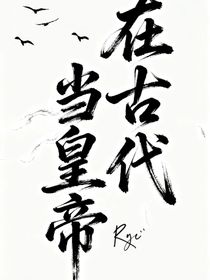 在古代
当皇帝